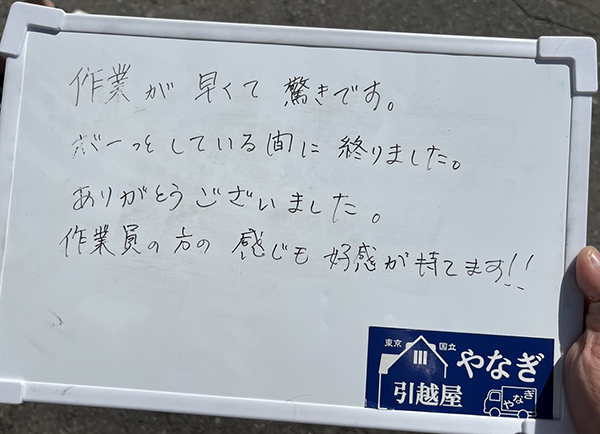 作業が早くて驚きです。
ボーっとしている間に終りました。
ありがとうございました。
作業員の方の感じも好感が持てます!!
東京 国立
やなぎ
引越屋
やなぎ